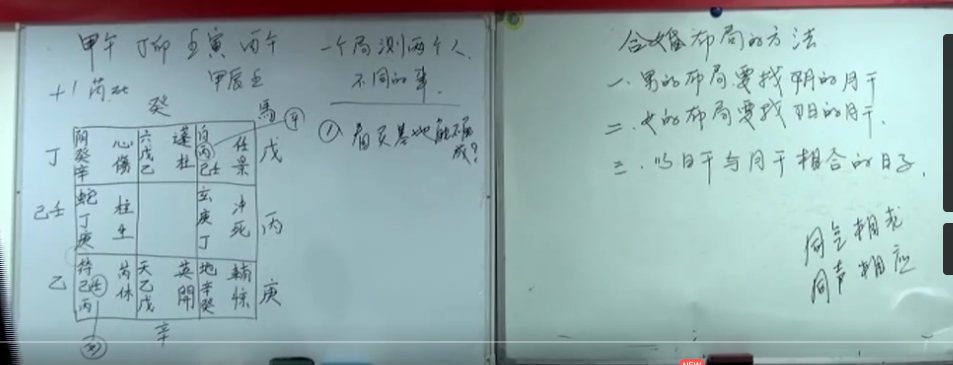 甲午 丁卯 壬寅 丙午
甲辰壬
一个局测两个人
不同的事.
+1 芮死
癸
馬
丁
阴 心
癸
辛 傷
六 蓬
戊
己 杜
白 任
丙
己壬 景
戊
己壬
蛇 柱
丁
庚 生
玄 冲
庚
丁 死
丙
乙
符 芮
己壬
丙 休
天 英
乙
戊 開
地 輔
辛
癸 惊
庚
辛
① 看灵基地能不能
成?
合婚布局的方法
一、男的布局要找阴的月干
二、女的布局要找阳的月干.
三、以日干与月干相合的日子.
同气相求
同声相应
NEW